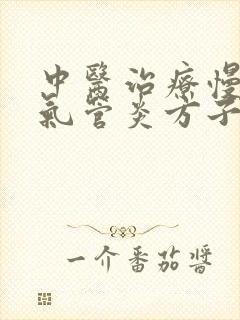 中醫治療慢
氣管炎方子
一介番茄醬